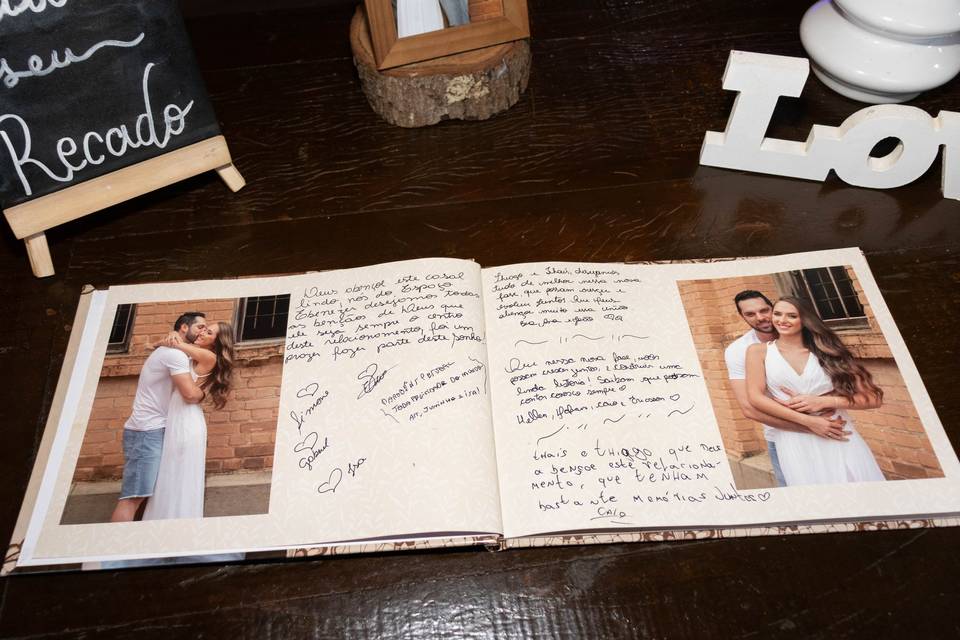 seu
Recado
Love
Deus abençoe este casal
lindo, nós do Espaço
Ebenezer desejamos todas
as bençãos de Deus que
ele seja sempre o centro
deste relacionamento, foi um
prazer fazer parte deste sonho
Simone
Gabriel
Isa
PARABÉNS CASAL!
TODA FELICIDADE DO MUNDO
Att, Juninho e Isa!
Thiago e Thais, desejamos
tudo de melhor nessa nova
fase que possam crescer e
evoluir juntos. Que Deus
abençoe muito essa união
Que nessa nova fase, vocês
possam crescer juntos, e construir uma
linda história! Saibam que podem
contar conosco sempre
Hellen, Caio e Ericsson
thais e thiago, que Deus
a bençoe este relaciona-
mento, que tenham
bastante memórias juntos
Caio